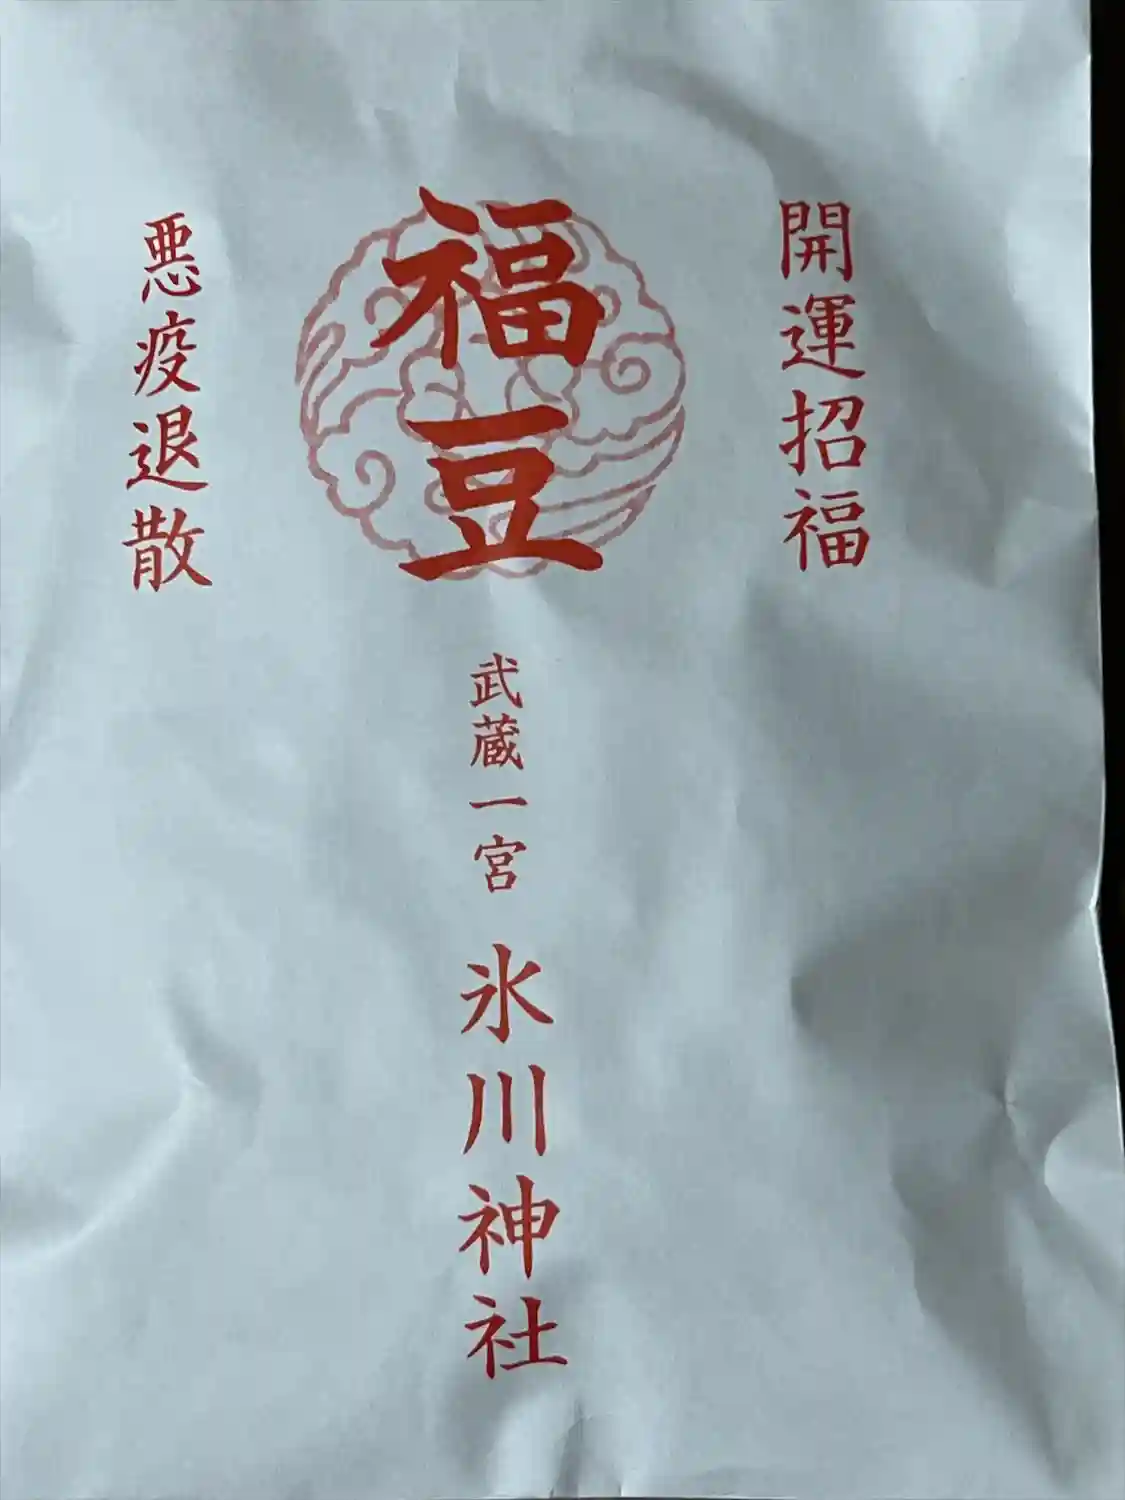 開運招福
福豆
武蔵一宮 氷川神社
悪疫退散